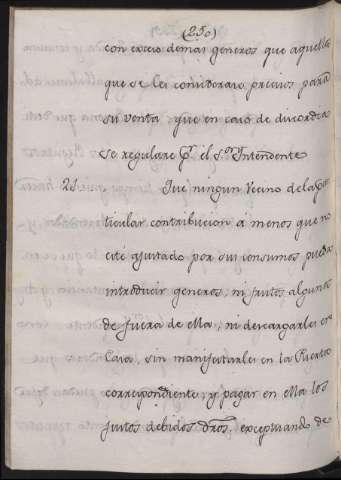 (250)
con exceso demas generos que aquellos
que se les considerare precisos para
su venta, que en caso de discordia
se regulare pr. el Sor. Yntendente
21 Que ningun Vecino dela par
ticular contribucion a menos que no
esté ajustado por sus consumos pueda
introducir generos, ni frutos algunos
de fuera de ella, ni descargarles en
Casa, sin manifestarles en la Puerta
correspondiente, y pagar en ella los
justos debidos dros, exceptuando de